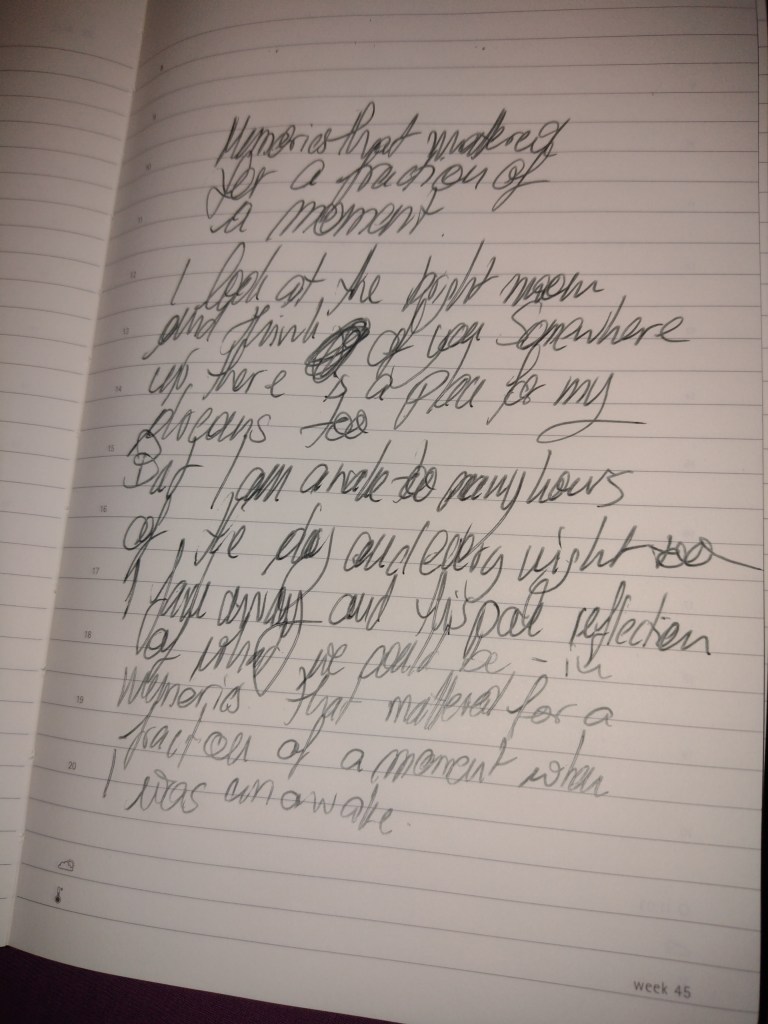 Memories that mattered
for a fraction of
a moment.
I look at the bright moon
and think of you Somewhere
up, there is a place for my
dreams too
But I am awake too many hours
of the day and every night too
I and this pale reflection
of what we could be, - in
Memories that mattered for a
fraction of a moment when
I was unawake.
week 45